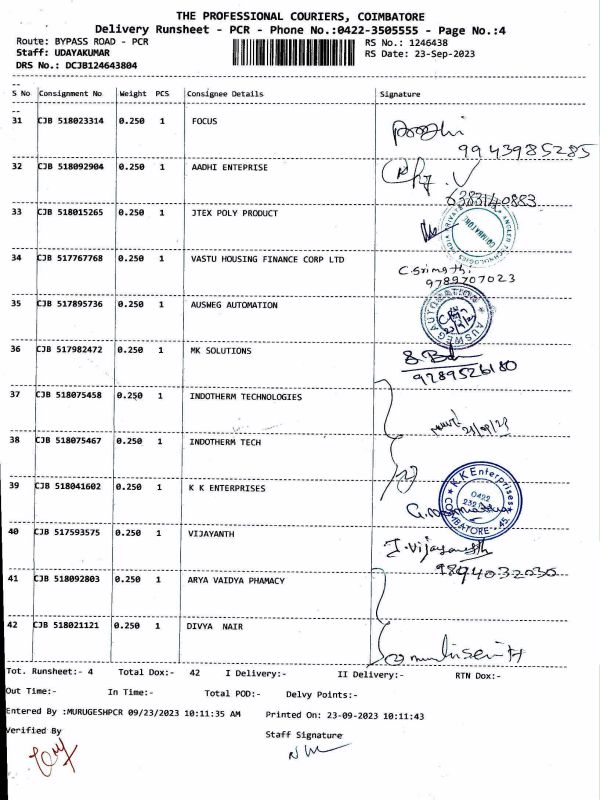 THE PROFESSIONAL COURIERS, COIMBATORE
Delivery Runsheet - PCR - Phone No.:0422-3505555 - Page No.:4
Route: BYPASS ROAD - PCR
RS No.: 1246438
Staff: UDAYAKUMAR
RS Date: 23-Sep-2023
DRS No.: DCJB124643804
S No Consignment No Weight PCS Consignee Details Signature
31 CJB 518023314 0.250 1 FOCUS
9943985285
32 CJB 518092904 0.250 1 AADHI ENTEPRISE
6383140883
33 CJB 518015265 0.250 1 JTEX POLY PRODUCT
COIMBATORE
34 CJB 517767768 0.250 1 VASTU HOUSING FINANCE CORP LTD
C.Srimathi
9789707023
35 CJB 517895736 0.250 1 AUSWEG AUTOMATION
AUSWEG AUTOMATION
36 CJB 517982472 0.250 1 MK SOLUTIONS
9789526180
37 CJB 518075458 0.250 1 INDOTHERM TECHNOLOGIES
38 CJB 518075467 0.250 1 INDOTHERM TECH
39 CJB 518041602 0.250 1 K K ENTERPRISES
K K Enterprises
0422
COIMBATORE - 45
40 CJB 517593575 0.250 1 VIJAYANTH
J.Vijayanth
9894032030
41 CJB 518092803 0.250 1 ARYA VAIDYA PHAMACY
42 CJB 518021121 0.250 1 DIVYA NAIR
Tot. Runsheet:- 4 Total Dox:- 42 I Delivery:- II Delivery:- RTN Dox:-
Out Time:- In Time:- Total POD:- Delvy Points:-
Entered By :MURUGESHPCR 09/23/2023 10:11:35 AM Printed On: 23-09-2023 10:11:43
Verified By
Staff Signature